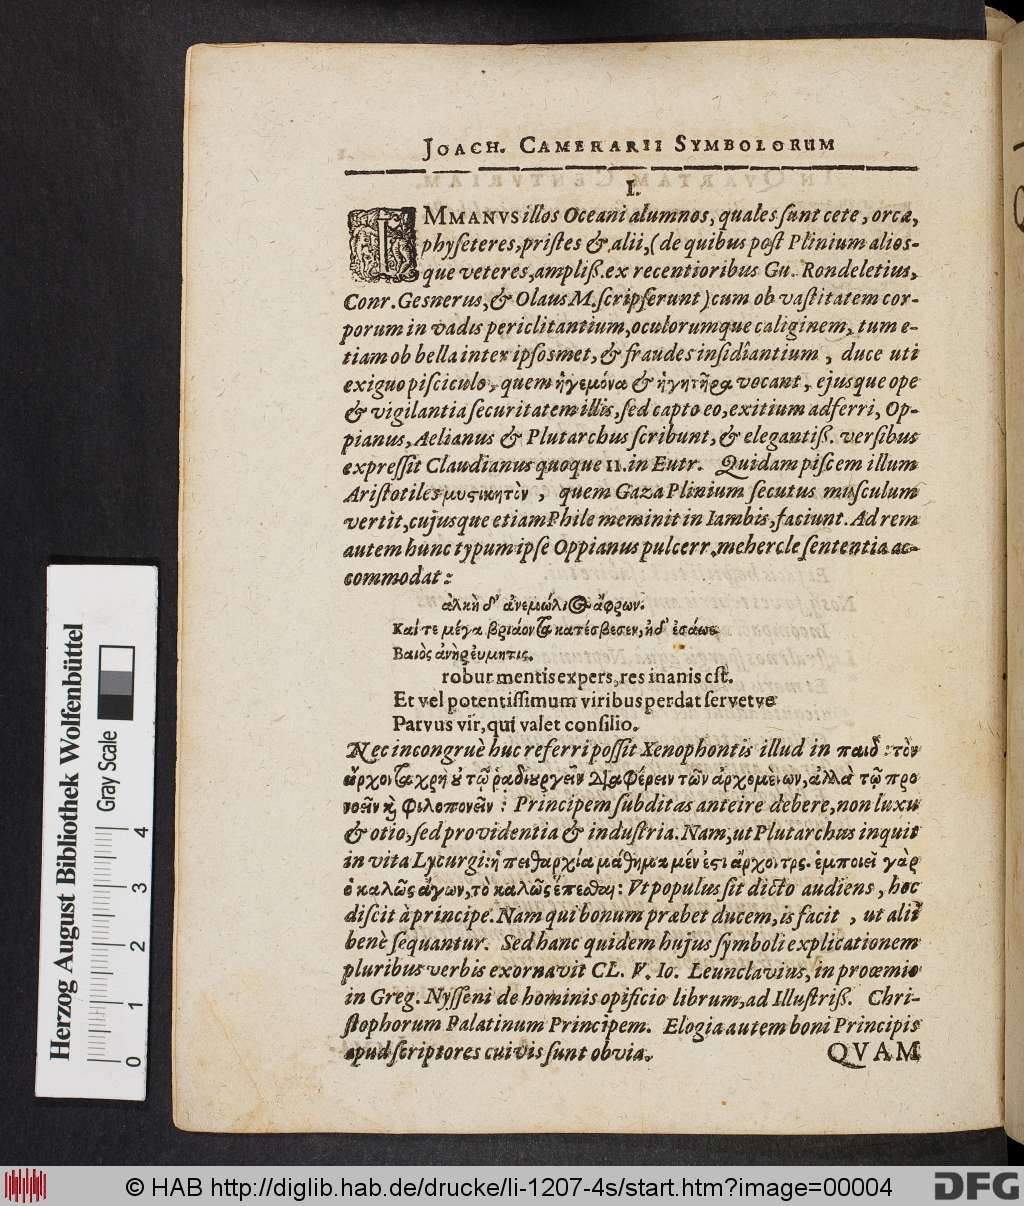 JOACH. CAMERARII SYMBOLORUM
I.
IMMANVS illos Oceani alumnos, quales sunt cete, orcæ,
physeteres, pristes & alii, (de quibus post Plinium alios-
que veteres, ampliß. ex recentioribus Gu. Rondeletius,
Conr. Gesnerus, & Olaus M. scripserunt) cum ob vastitatem cor-
porum in vadis periclitantium, oculorumque caliginem, tum e-
tiam ob bella inter ipsosmet, & fraudes insidiantium, duce uti
exiguo pisciculo, quem ἡγεμόνα & ἡγητῆρα vocant, ejusque ope
& vigilantia securitatem illis, sed capto eo, exitium adferri, Op-
pianus, Aelianus & Plutarchus scribunt, & elegantiß. versibus
expressit Claudianus quoque II. in Eutr. Quidam piscem illum
Aristotiles μυστικητὸν, quem Gaza Plinium secutus musculum
vertit, cujusque etiam Phile meminit in Iambis, faciunt. Ad rem
autem hunc typum ipse Oppianus pulcerr. mehercle sententia ac-
commodat:
ἀλκὴ δ' ἀνεμώλιος ἄφρων.
Καί τε μέγα βριάοντα κατέσβεσεν, ἠδ' ἐσάωσε
Βαιὸς ἀνὴρ εὔμητις.
robur mentis expers, res inanis est.
Et vel potentissimum viribus perdat servetve
Parvus vir, qui valet consilio.
Nec incongruè huc referri possit Xenophontis illud in παιδ: τὸν
ἄρχοντα χρὴ οὐ τῷ ῥαδιουργεῖν διαφέρειν τῶν ἀρχομένων, ἀλλὰ τῷ προ
νοεῖν καὶ φιλοπονεῖν: Principem subditas anteire debere, non luxu
& otio, sed providentia & industria. Nam, ut Plutarchus inquit
in vita Lycurgi: ἡ πειθαρχία μάθημα μέν ἐστι ἄρχοντος. ἐμποιεῖ γὰρ
ὁ καλῶς ἄγων, τὸ καλῶς ἕπεσθαι: Vt populus sit dicto audiens, hoc
discit à principe. Nam qui bonum præbet ducem, is facit, ut alii
benè sequantur. Sed hanc quidem hujus symboli explicationem
pluribus verbis exornavit CL. V. Io. Leunclavius, in proœmio
in Greg. Nysseni de hominis opificio librum, ad Illustriß. Chri-
stophorum Palatinum Principem. Elogia autem boni Principis
apud scriptores cuivis sunt obvia.
QVAM
Herzog August Bibliothek Wolfenbüttel
Gray Scale
0 1 2 3 4
© HAB http://diglib.hab.de/drucke/li-1207-4s/start.htm?image=00004
DFG